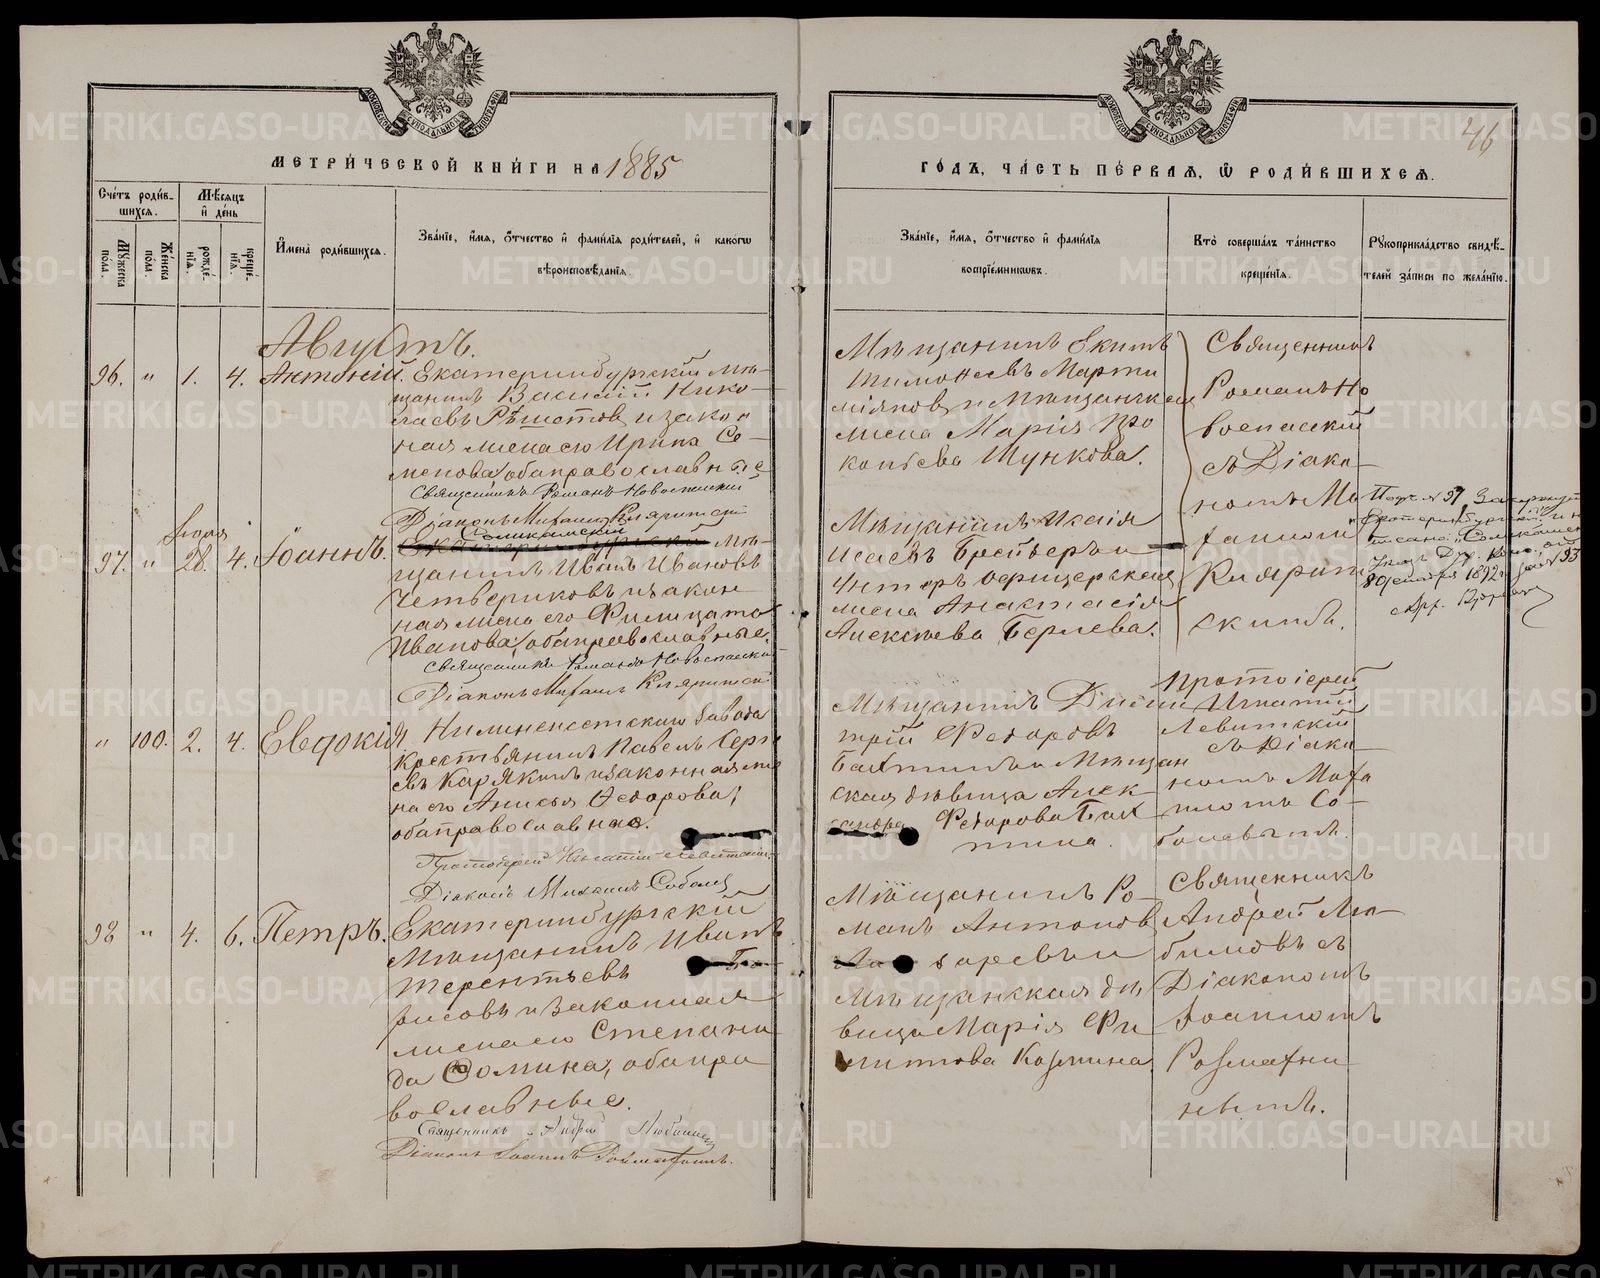 МЕТРИЧЕСКОЙ КНИГИ НА 1885
ГОДЪ, ЧАСТЬ ПЕРВАЯ, Ѿ РОДИВШИХСЯ.
46
Счетъ родив-
шихся.
Мѣсяцъ
и день
Мужеска пола.
Женска пола.
рожденія.
крещенія.
Имена родившихся.
Званіе, имя, отчество и фамилія родителей, и какогѡ
вѣроисповѣданія.
Званіе, имя, отчество и фамилія
воспріемниковъ.
Кто совершалъ таинство
крещенія.
Рукоприкладство свидѣ-
телей записи по желанію.
Августъ.
96. " 1. 4. Антоній.
Екатеринбургскій мѣ-
щанинъ Василій Нико-
лаевъ Рѣшетовъ и закон
ная жена его Ирина Се-
менова, оба православные
Священникъ Романъ Новоспасскій
Діаконъ Михаилъ Кляритскій
Мѣщанинъ Екимъ
Тимоѳеевъ Марти
міяновъ и Мѣщанская
жена Марія Про
копьева Шункова.
Священникъ
Романъ Но
воспасскій
съ Діако-
номъ Ми
хаиломъ
Кляритскимъ.
Іюля
97. " 28. 4. Іоаннъ.
Соликамскій
Екатеринбургскій мѣ-
щанинъ Иванъ Ивановъ
Четвериковъ и закон
ная жена его Филицата
Иванова, оба православные.
Священникъ Романъ Новоспасскій
Діаконъ Михаилъ Кляритскій
Мѣщанинъ Исаія
Исаевъ Брейтеръ и
Унтеръ офицерская
жена Анастасія
Алексѣева Берлева.
" 100. 2. 4. Евдокія.
Нижнеисетскаго завода
крестьянинъ Павелъ Серге
евъ Карякинъ и законная же
на его Анисья Ѳедорова,
оба православные.
Протоіерей Игнатій Левитскій
Діаконъ Михаилъ Соболевъ
Мѣщанинъ Дими
трій Ѳедоровъ
Бахтинъ и Мѣщан
ская дѣвица Алек-
сандра Ѳедорова Бах
тина.
Протоіерей
Игнатій
Левитскій
съ Діако-
номъ Миха
иломъ Со-
болевымъ.
98 " 4. 6. Петръ.
Екатеринбургскій
Мѣщанинъ Иванъ
Терентьевъ Бо-
рисовъ и законная
жена его Степани
да Ѳомина, оба пра
вославные.
Священникъ Андрей Любимовъ
Діаконъ Іоаннъ
Мѣщанинъ Ро-
манъ Антоновъ
Ла заревъ и
Мѣщанская дѣ
вица Марія Фи
липпова Козмина
Священникъ
Андрей Лю-
бимовъ съ
Діакономъ
Іоанномъ